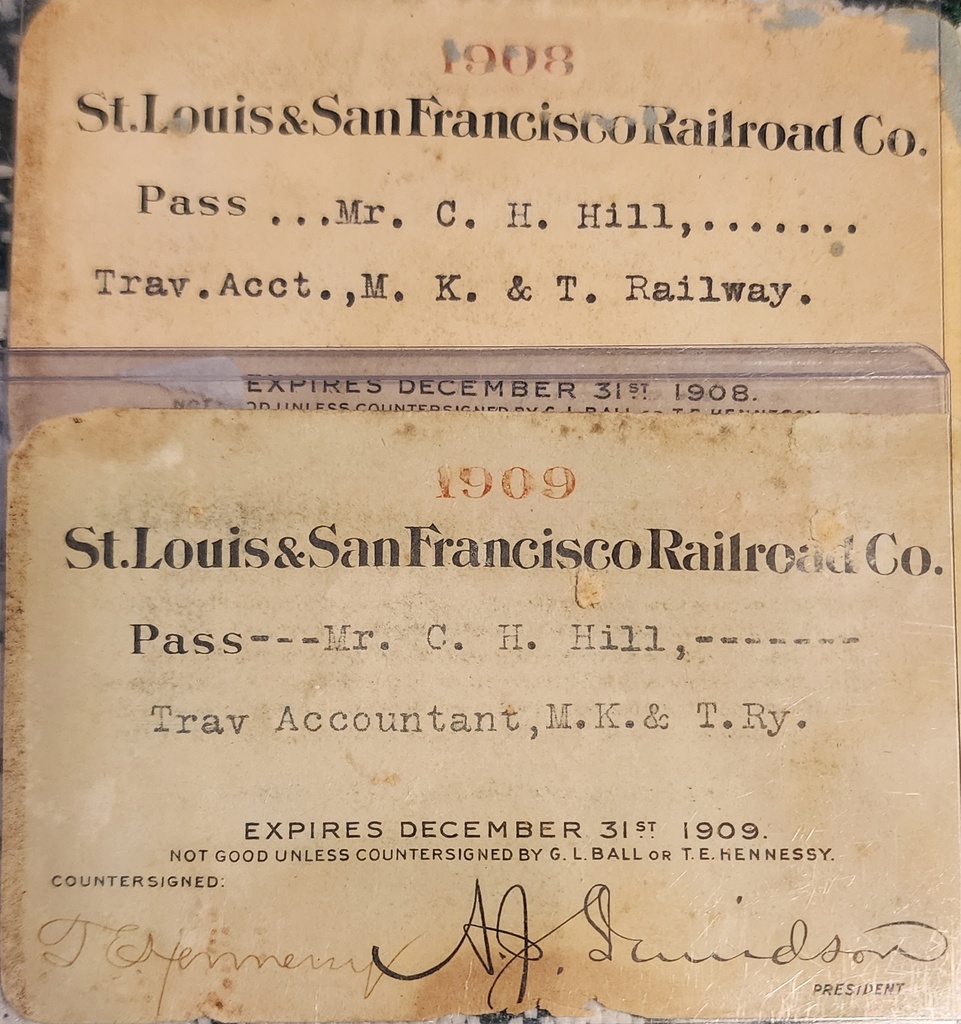 1908
St. Louis & San Francisco Railroad Co.
Pass ...Mr. C. H. Hill,.......
Trav. Acct., M. K. & T. Railway.
EXPIRES DECEMBER 31ST 1908.
UNLESS COUNTERSIGNED BY G. L. BALL OR T. E. HENNESSY.
1909
St. Louis & San Francisco Railroad Co.
Pass---Mr. C. H. Hill,-------
Trav Accountant, M. K. & T. Ry.
EXPIRES DECEMBER 31ST 1909.
NOT GOOD UNLESS COUNTERSIGNED BY G. L. BALL OR T. E. HENNESSY.
COUNTERSIGNED:
T E Hennessy A. J. Davidson
PRESIDENT